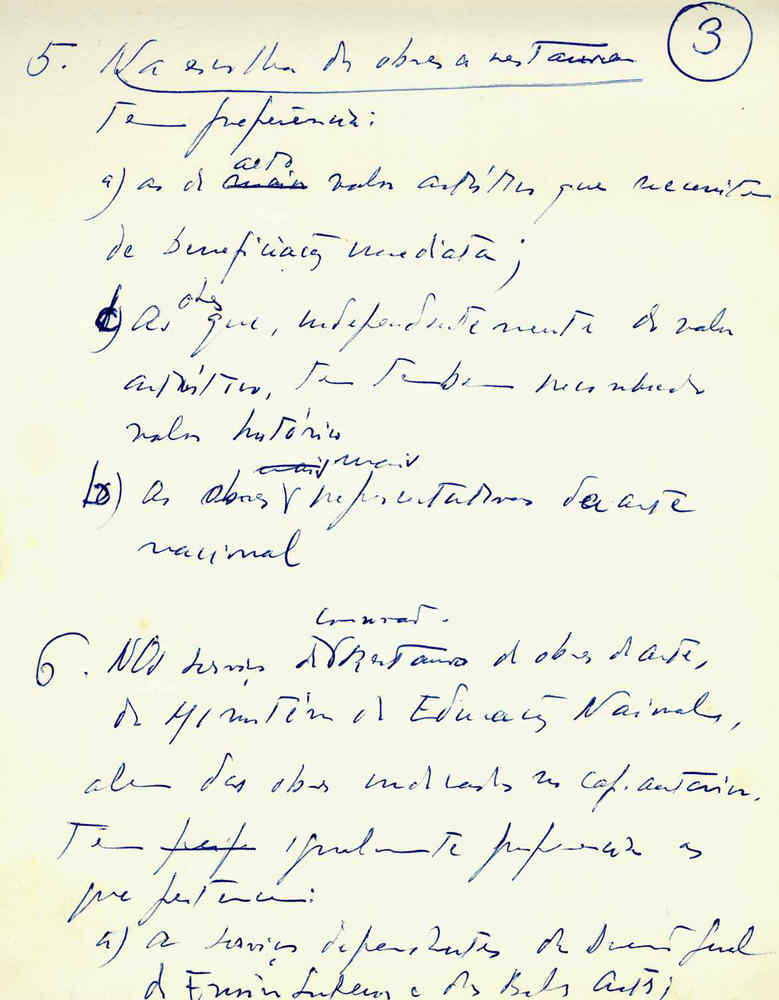 3
5. Na escolha de obras a restaurar
tem preferência:
a) as de alto valor artístico que necessitem
de beneficiação imediata;
c) As obras que, independentemente do valor
artístico, tem também reconhecido
valor histórico
b) As obras mais representativas da arte
nacional
conservat.
6. Nos serviços de Restauro de obras de arte,
do Ministério da Educação Nacional,
alem das obras indicadas no cap. anterior,
Têm igualmente preferência as
que pertencem:
a) a serviços dependentes da Direcç. Geral
do Ensino Superior e das Belas Artes;